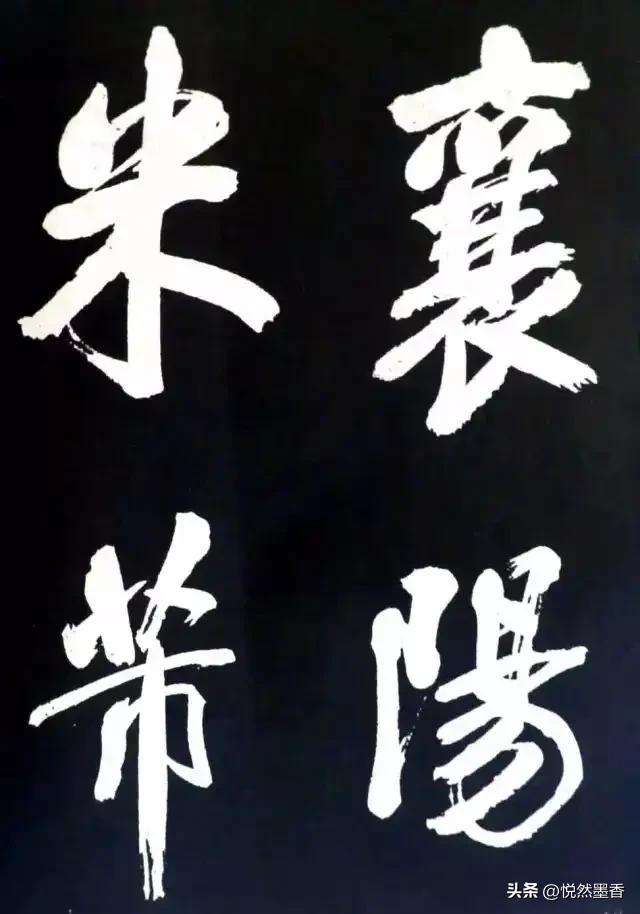 襄陽
米芾
头条 @悦然墨香